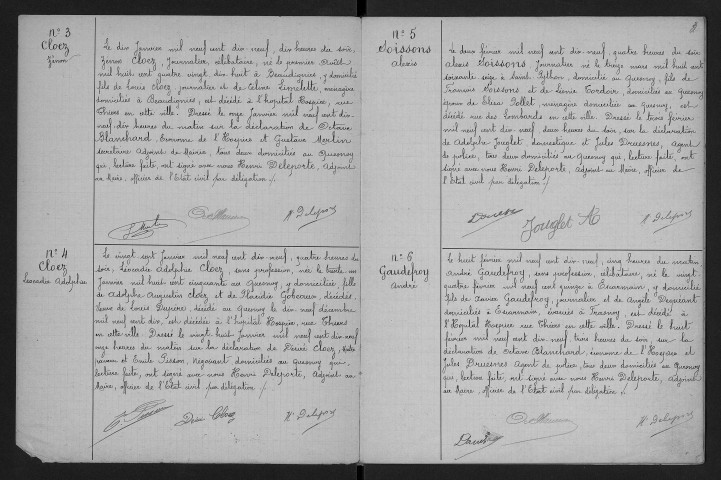 N° 3
Cloez
Zénon
Le dix Janvier mil neuf cent dix-neuf, dix heures du soir,
Zénon Cloez, Journalier, célibataire, né le premier Août
mil huit cent quatre vingt dix huit à Beaudignies, y domicilié
fils de Louis Cloez, journalier et de Céline Limelette, ménagère
domiciliés à Beaudignies, est décédé à l'hopital Hospice, rue
Thiers en cette ville. Dressé le onze Janvier mil neuf cent dix-
neuf, dix heures du matin sur la déclaration de Octave
Blanchard, Econome de l'Hospice et Gustave Merlin
secrétaire Adjoint de Mairie, tous deux domiciliés au Quesnoy
qui, lecture faite, ont signé avec nous Henri Deleporte, Adjoint
au Maire, officier de l'Etat civil par délégation /.
H Deleporte
N° 4
Cloez
Léocadie Adolphie
Le vingt sept Janvier mil neuf cent dix-neuf, quatre heures du
soir, Léocadie Adolphie Cloez, sans profession, née le trente un
Janvier mil huit cent cinquante au Quesnoy, y domiciliée, fille
de Adolphe Augustin Cloez et de Placidie Gobecaux, décédés.
Veuve de Louis Dupire, décédé au Quesnoy le dix décembre
mil neuf cent dix, est décédée à l'hopital Hospice, rue Thiers
en cette ville. Dressé le vingt huit Janvier mil neuf cent dix-neuf
onze heures du matin sur la déclaration de Désiré Cloez,
et Emile Pisson, négociant domiciliés au Quesnoy qui
lecture faite, ont signé avec nous Henri Deleporte, Adjoint au
Maire, officier de l'Etat civil par délégation /.
Désiré Cloez
H Deleporte
N° 5
Soissons
Alexis
Le deux février mil neuf cent dix-neuf, quatre heures du soir
Alexis Soissons, Journalier né le treize mars mil huit cent
soixante seize à Saint Python, domicilié au Quesnoy, fils de
François Soissons et de Lemire Cordoir, domiciliés au Quesnoy
époux de Elisa Pollet, ménagère domiciliée au Quesnoy, est
décédé rue des Lombards en cette ville. Dressé le trois février
mil neuf cent dix-neuf, deux heures du soir, sur la déclaration
de Adolphe Jouglet, domestique et Jules Druesnes, Agent
de police, tous deux domiciliés au Quesnoy qui, lecture faite, ont
signé avec nous Henri Deleporte, Adjoint au Maire, officier de
l'Etat civil par délégation /.
Jouglet A
H Deleporte
N° 6
Gaudefroy
André
Le huit février mil neuf cent dix-neuf, cinq heures du matin
André Gaudefroy, sans profession, célibataire, né le vingt
quatre février mil neuf cent quinze à Escarmain, y domicilié
fils de Xavier Gaudefroy, journalier et de Angèle Dequéant
domiciliés à Escarmain, évacués à Frasnoy, est décédé à
l'Hopital Hospice rue Thiers en cette ville. Dressé le huit
février mil neuf cent dix-neuf, trois heures du soir, sur la
déclaration de Octave Blanchard, économe de l'Hospice et
Jules Druesnes Agent de police, tous deux domiciliés au Quesnoy
qui, lecture faite, ont signé avec nous Henri Deleporte, Adjoint
au Maire, officier de l'Etat civil par délégation /.
H Deleporte